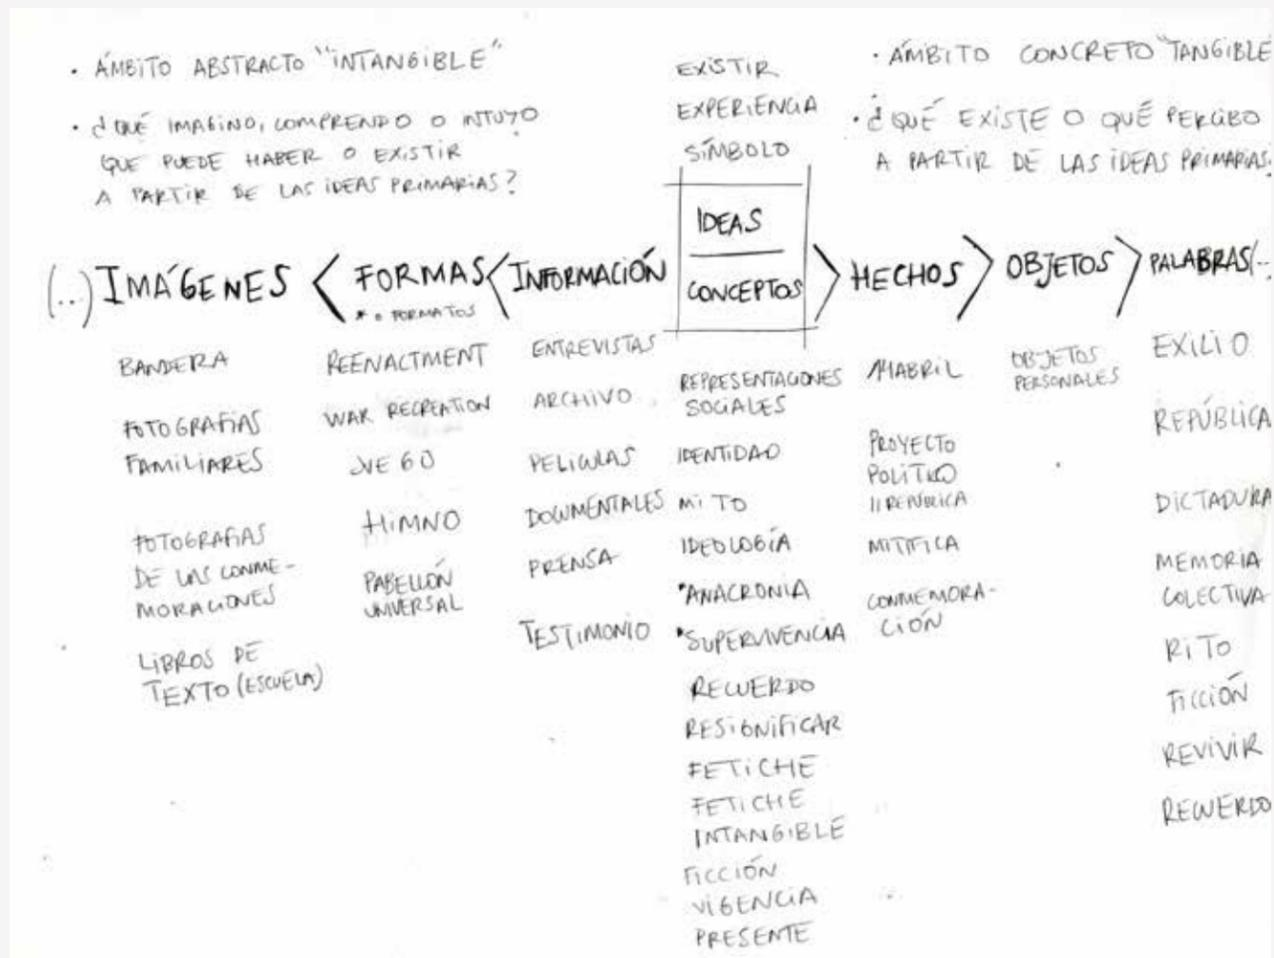 · ÁMBITO ABSTRACTO "INTANGIBLE"
· ¿QUÉ IMAGINO, COMPRENDO O INTUYO
QUE PUEDE HABER O EXISTIR
A PARTIR DE LAS IDEAS PRIMARIAS?
EXISTIR
EXPERIENCIA
SÍMBOLO
· ÁMBITO CONCRETO "TANGIBLE
· ¿QUÉ EXISTE O QUÉ PERCIBO
A PARTIR DE LAS IDEAS PRIMARIAS
(...) IMÁGENES < FORMAS < INFORMACIÓN
* O FORMATOS
IDEAS
CONCEPTOS
> HECHOS > OBJETOS > PALABRAS (..
BANDERA
FOTOGRAFÍAS
FAMILIARES
FOTOGRAFIAS
DE LAS CONME-
MORACIONES
LIBROS DE
TEXTO (ESCUELA)
REENACTMENT
WAR RECREATION
JUEGO
HIMNO
PABELLÓN
UNIVERSAL
ENTREVISTAS
ARCHIVO
PELICULAS
DOCUMENTALES
PRENSA
TESTIMONIO
REPRESENTACIONES
SOCIALES
IDENTIDAD
MITO
IDEOLOGÍA
*ANACRONIA
*SUPERVIVENCIA
RECUERDO
RESIGNIFICAR
FETICHE
FETICHE
INTANGIBLE
FICCIÓN
VIGENCIA
PRESENTE
14ABRIL
PROYECTO
POLÍTICO
II REPÚBLICA
MITIFICA
CONMEMORA-
CIÓN
OBJETOS
PERSONALES
EXILIO
REPÚBLICA
DICTADURA
MEMORIA
COLECTIVA
RITO
FICCIÓN
REVIVIR
RECUERDO